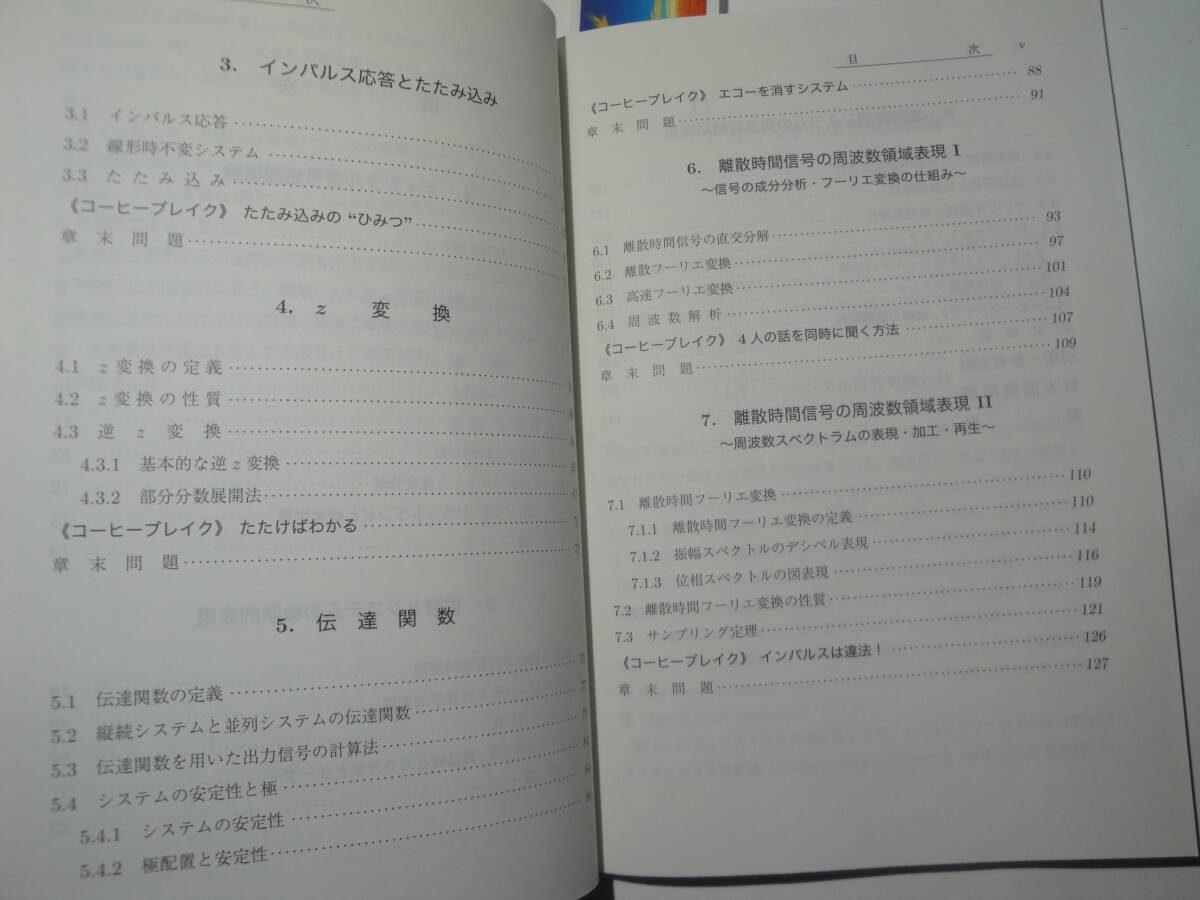 次
3. インパルス応答とたたみ込み
3.1 インパルス応答
3.2 線形時不変システム
3.3 たたみ込み
《コーヒーブレイク》 たたみ込みの“ひみつ”
章末問題
4. z変換
4.1 z変換の定義
4.2 z変換の性質
4.3 逆z変換
4.3.1 基本的な逆z変換
4.3.2 部分分数展開法
《コーヒーブレイク》 たたけばわかる
章末問題
5. 伝達関数
5.1 伝達関数の定義
5.2 縦続システムと並列システムの伝達関数
5.3 伝達関数を用いた出力信号の計算法
5.4 システムの安定性と極
5.4.1 システムの安定性
5.4.2 極配置と安定性
目次 v
《コーヒーブレイク》 エコーを消すシステム 88
章末問題 91
6. 離散時間信号の周波数領域表現 I
〜信号の成分分析・フーリエ変換の仕組み〜
6.1 離散時間信号の直交分解 93
6.2 離散フーリエ変換 97
6.3 高速フーリエ変換 101
6.4 周波数解析 104
《コーヒーブレイク》 4人の話を同時に聞く方法 107
章末問題 109
7. 離散時間信号の周波数領域表現 II
〜周波数スペクトラムの表現・加工・再生〜
7.1 離散時間フーリエ変換 110
7.1.1 離散時間フーリエ変換の定義 110
7.1.2 振幅スペクトルのデシベル表現 114
7.1.3 位相スペクトルの図表現 116
7.2 離散時間フーリエ変換の性質 119
7.3 サンプリング定理 121
《コーヒーブレイク》 インパルスは違法！ 126
章末問題 127